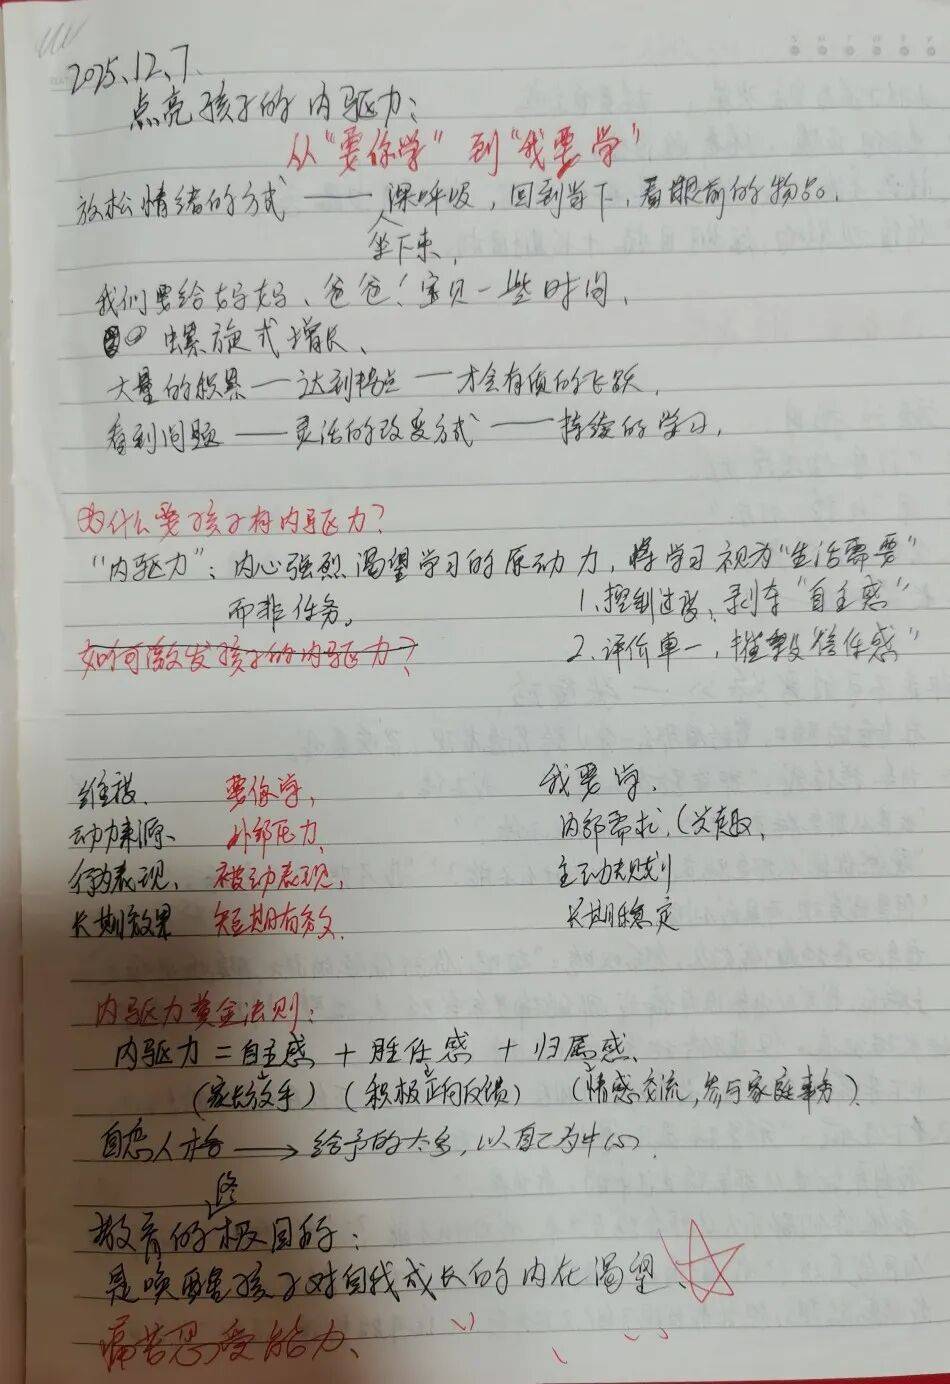 2025.12.7.
点亮孩子的内驱力：
从“要你学”到“我要学”
放松情绪的方式——深呼吸，回到当下，看眼前的物品.
坐下来，
我们要给好好、爸爸！宝贝一些时间，
螺旋式增长、
大量的积累—达到拐点—才会有质的飞跃，
看到问题——灵活的改变方式——持续的学习，
为什么要孩子有内驱力？
“内驱力”：内心强烈渴望学习的原动力，将学习视为“生活需要”
而非任务。
1、控制过度、剥夺“自主感”
如何激发孩子的内驱力？
2、评价单一，摧毁“信任感”
维被、 要你学， 我要学.
动力来源、 外部压力、 内部需求，(兴趣，
行为表现、 被动表现， 主动规划
长期效果 短期有效 长期稳定
内驱力黄金法则：
内驱力＝自主感＋胜任感＋归属感、
(家长放手) (积极正向反馈) (情感交流，参与家庭事务)
自恋人格→给予的太多，以自己为中心.
终
教育的极目标：
是唤醒孩子对自我成长的内在渴望、
痛苦忍受能力、